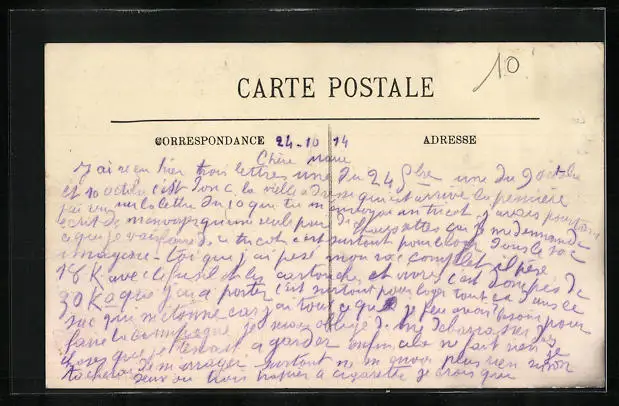 10
CARTE POSTALE
CORRESPONDANCE 24-10 14 ADRESSE
Chère Marie
J'ai reçu hier trois lettres une du 24 9bre une du 9 octobre
et 10 octobre c'est donc la vieille adresse qui est arrivé la première
j'ai vu sur la lettre du 10 que tu m'envoye un tricot j'avais pourtant
écrit de m'envoyer qu'une seule paire de chaussettes car je me demande
a que je vais de ce tricot c'est surtout pour loger dans le sac
imagine-toi que j'ai pesé mon sac complet il pèse
18 K avec le fusil et les cartouches et vivres c'est donc pas de
30 K que j'ai a porter c'est surtout pour loger tout ça dans ce
sac qui m'étonne car j'ai tout ce que je peu avoir besoin pour
faire la campagne je suis obligé de me débarasser des
choses que je tenait a garder enfin cela ne fait rien je
tacherai de m'arranger surtout ne m'envoi plus rien sinon
deux ou trois papier a cigarette je crois que